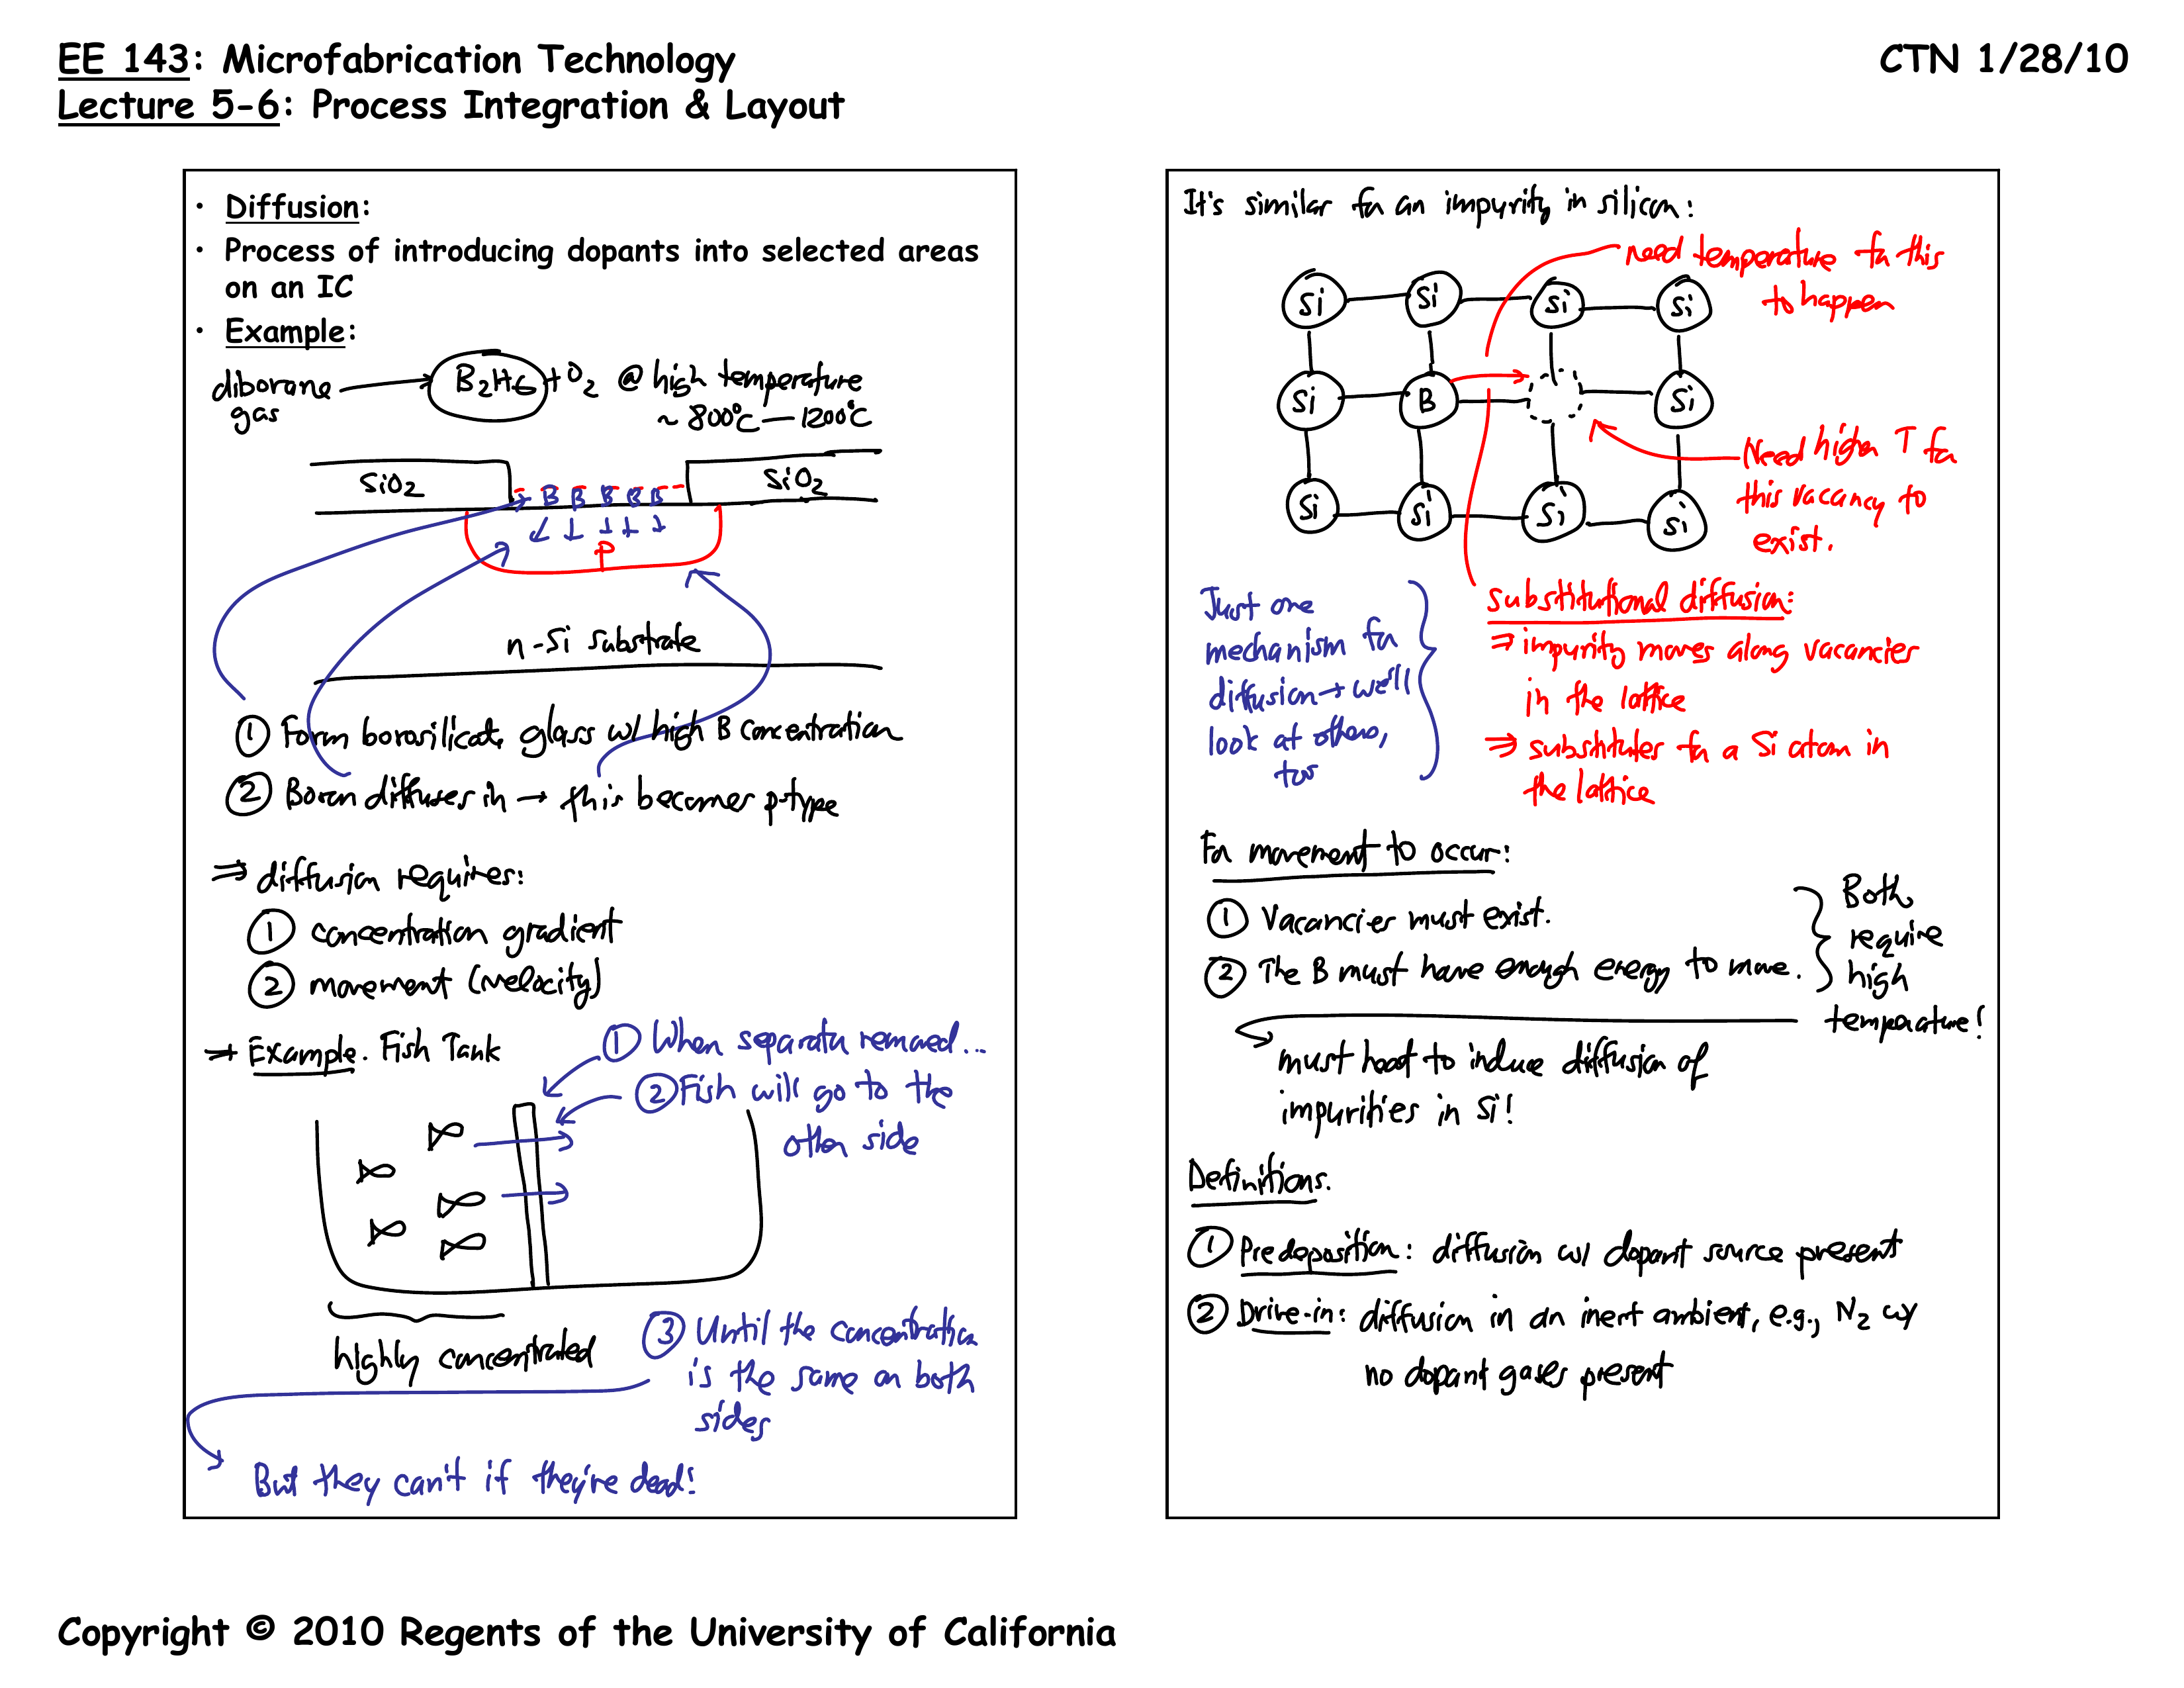 EE 143: Microfabrication Technology
CTN 1/28/10
Lecture 5-6: Process Integration & Layout
• Diffusion:
• Process of introducing dopants into selected areas
on an IC
• Example:
diborane
gas
B₂H₆ + O₂ @ high temperature
~ 800°C — 1200°C
SiO₂
SiO₂
B B B B B
P
n-Si substrate
① Form borosilicate glass w/ high B concentration
② Boron diffuses in → this becomes p-type
⇒ diffusion requires:
① concentration gradient
② movement (velocity)
→ Example. Fish Tank
① When separator removed...
② Fish will go to the
other side
highly concentrated
③ Until the concentration
is the same on both
sides
But they can't if they're dead!
It's similar for an impurity in silicon:
need temperature for this
to happen
Si Si Si Si
Si B Si
Need high T for
this vacancy to
exist.
Si Si Si Si
Just one
mechanism for
diffusion → we'll
look at others,
too
Substitutional diffusion:
⇒ impurity moves along vacancies
in the lattice
⇒ substitutes for a Si atom in
the lattice
For movement to occur:
① Vacancies must exist.
② The B must have enough energy to move.
Both
require
high
temperature!
must heat to induce diffusion of
impurities in Si!
Definitions.
① Predeposition: diffusion w/ dopant source present
② Drive-in: diffusion in an inert ambient, e.g., N₂ w/
no dopant gases present
Copyright © 2010 Regents of the University of California